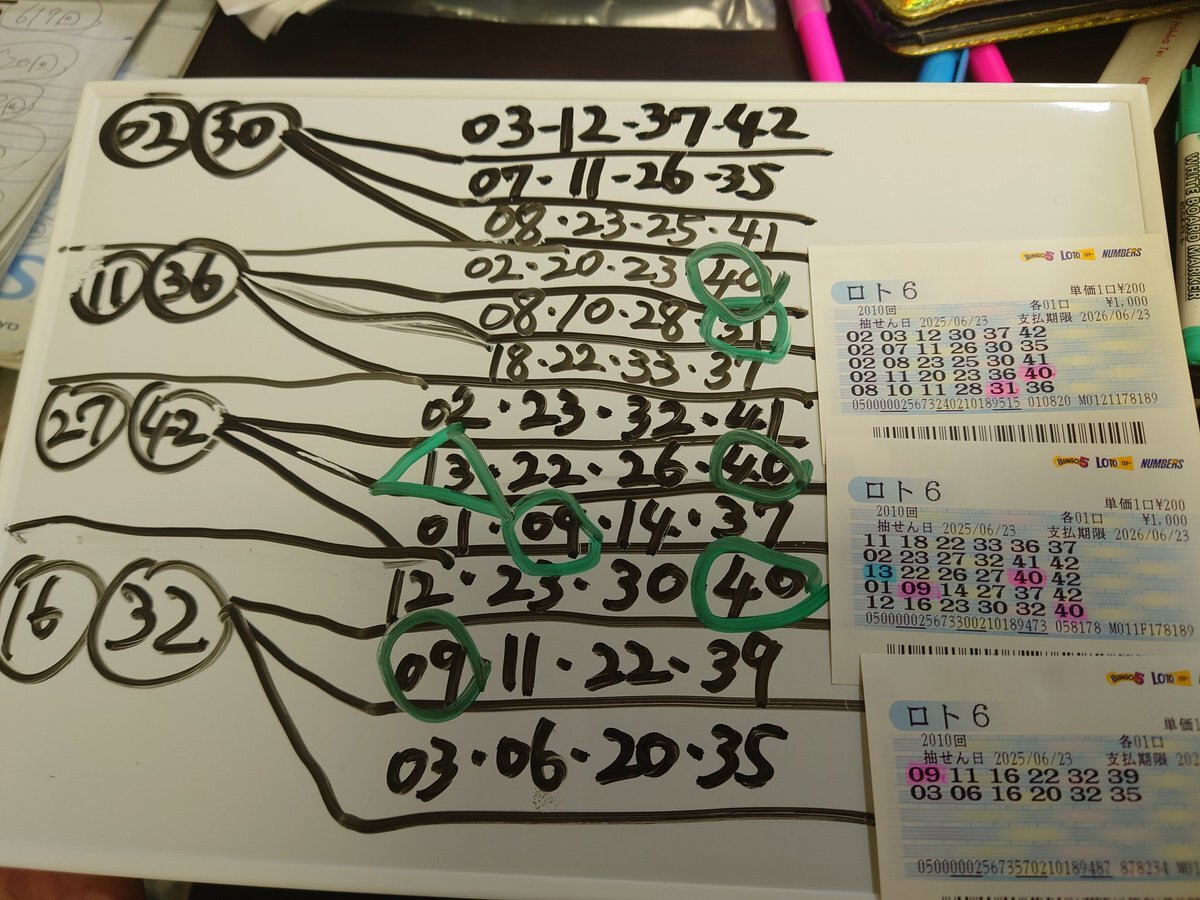 02 30
03-12・37・42
07・11・26・35
08・23・25・41
11 36
02・20・23 40
08・10・28・31
18・22・33・37
27 42
02・23・32・41
13・22・26・40
01・09・14・37
16 32
12・23・30 40
09 11・22・39
03・06・20・35
BINGO5 LOTO NUMBERS
ロト6
単価1口¥200
2010回 各01口 ¥1,000
抽せん日 2025/06/23 支払期限 2026/06/23
02 03 12 30 37 42
02 07 11 26 30 35
02 08 23 25 30 41
02 11 20 23 36 40
08 10 11 28 31 36
050000025673240210189515 010820 M0121178189
BINGO5 LOTO NUMBERS
ロト6
単価1口¥200
2010回 各01口 ¥1,000
抽せん日 2025/06/23 支払期限 2026/06/23
11 18 22 33 36 37
02 23 27 32 41 42
13 22 26 27 40 42
01 09 14 27 37 42
12 16 23 30 32 40
050000025673300210189473 058178 M011F178189
BINGO5 LOTO
ロト6
単価1
2010回 各01口
抽せん日 2025/06/23 支払期限 202
09 11 16 22 32 39
03 06 16 20 32 35
050000025673570210189487 878234 M01
WHITE BOARD MARKER